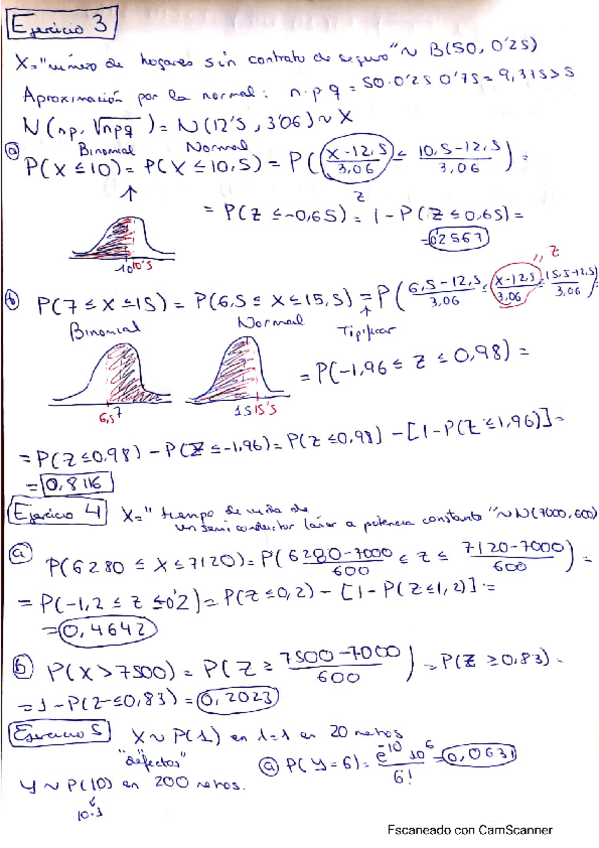 Ejercicio 3
X="número de hogares sin contrato de seguro" ~ B(50, 0'25)
Aproximación por la normal: n·p·q = 50·0'25·0'75 = 9,375>5
N(np, √npq) = N(12'5, 3'06) ~ X
Binomial Normal
a) P(X ≤ 10) = P(X ≤ 10,5) = P((X-12,5)/3,06 ≤ (10,5-12,5)/3,06) =
z
= P(Z ≤ -0,65) = 1 - P(Z ≤ 0,65) =
= 0'2567
10 10's
b) P(7 ≤ X ≤ 15) = P(6,5 ≤ X ≤ 15,5) = P((6,5-12,5)/3,06 ≤ (X-12,5)/3,06 ≤ (15,5-12,5)/3,06) =
" z
Binomial Normal Tipificar
= P(-1,96 ≤ Z ≤ 0,98) =
6,5 7 15 15's
= P(Z ≤ 0,98) - P(Z ≤ -1,96) = P(Z ≤ 0,98) - [1 - P(Z ≤ 1,96)] =
= 0,8116
Ejercicio 4 X=" tiempo de vida de
un semiconductor láser a potencia constante" ~ N(7000, 600)
a) P(6280 ≤ X ≤ 7120) = P((6280-7000)/600 ≤ Z ≤ (7120-7000)/600) =
= P(-1,2 ≤ Z ≤ 0'2) = P(Z ≤ 0,2) - [1 - P(Z ≤ 1,2)] =
= 0,4642
b) P(X > 7500) = P(Z ≥ (7500-7000)/600) = P(Z ≥ 0,83) =
= 1 - P(Z ≤ 0,83) = 0,2023
Ejercicio 5 X ~ P(1) en 20 metros
"defectos" a) P(Y=6) = e^-10 10^6 / 6! = 0,0631
Y ~ P(10) en 200 metros.
10·1
Escaneado con CamScanner